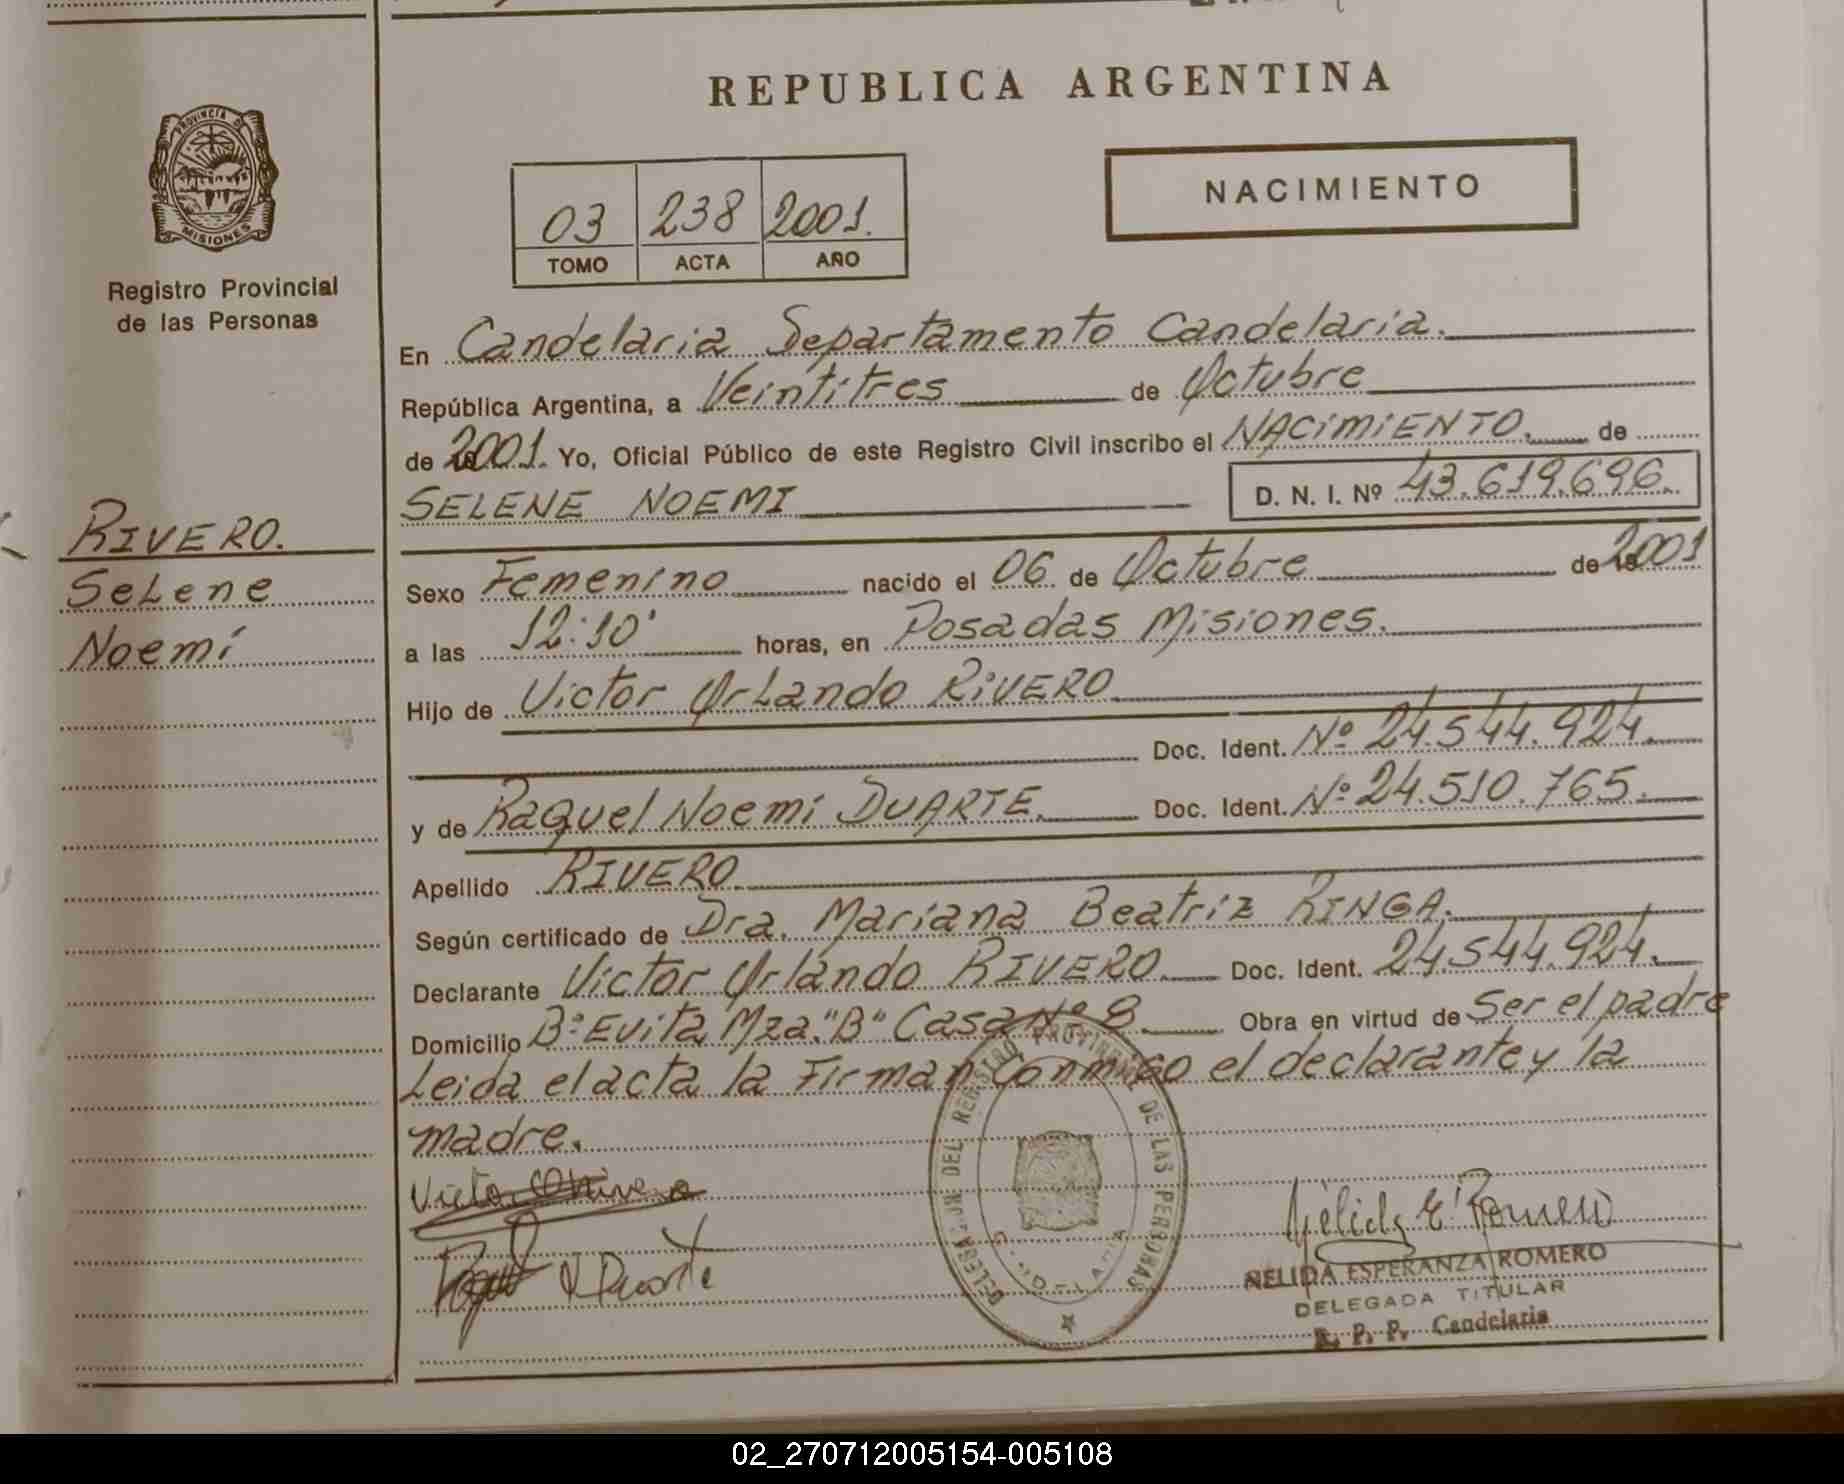 REPUBLICA ARGENTINA
PROVINCIA DE MISIONES
Registro Provincial
de las Personas
03 238 2001.
TOMO ACTA AÑO
NACIMIENTO
En Candelaria Departamento Candelaria.
República Argentina, a Veintitres de Octubre
de 2001. Yo, Oficial Público de este Registro Civil inscribo el NACIMIENTO. de
SELENE NOEMI D. N. I. Nº 43.619.696.
RIVERO.
Selene
Noemí
Sexo Femenino nacido el 06 de Octubre de 2001
a las 12:10' horas, en Posadas Misiones.
Hijo de Victor Orlando RIVERO
Doc. Ident. Nº 24.544.924.
y de Raquel Noemí DUARTE. Doc. Ident. Nº 24.510.765.
Apellido RIVERO.
Según certificado de Dra. Mariana Beatriz RINGA.
Declarante Victor Orlando RIVERO. Doc. Ident. 24.544.924.
Domicilio Bº Evita Mza. "B" Casa Nº 8. Obra en virtud de Ser el padre
Leida el acta la Firman Conmigo el declarante y la
madre.
DELEGACION DEL REGISTRO PROVINCIAL DE LAS PERSONAS
CANDELARIA
NELIDA ESPERANZA ROMERO
DELEGADA TITULAR
R. P. P. Candelaria
02_270712005154-005108